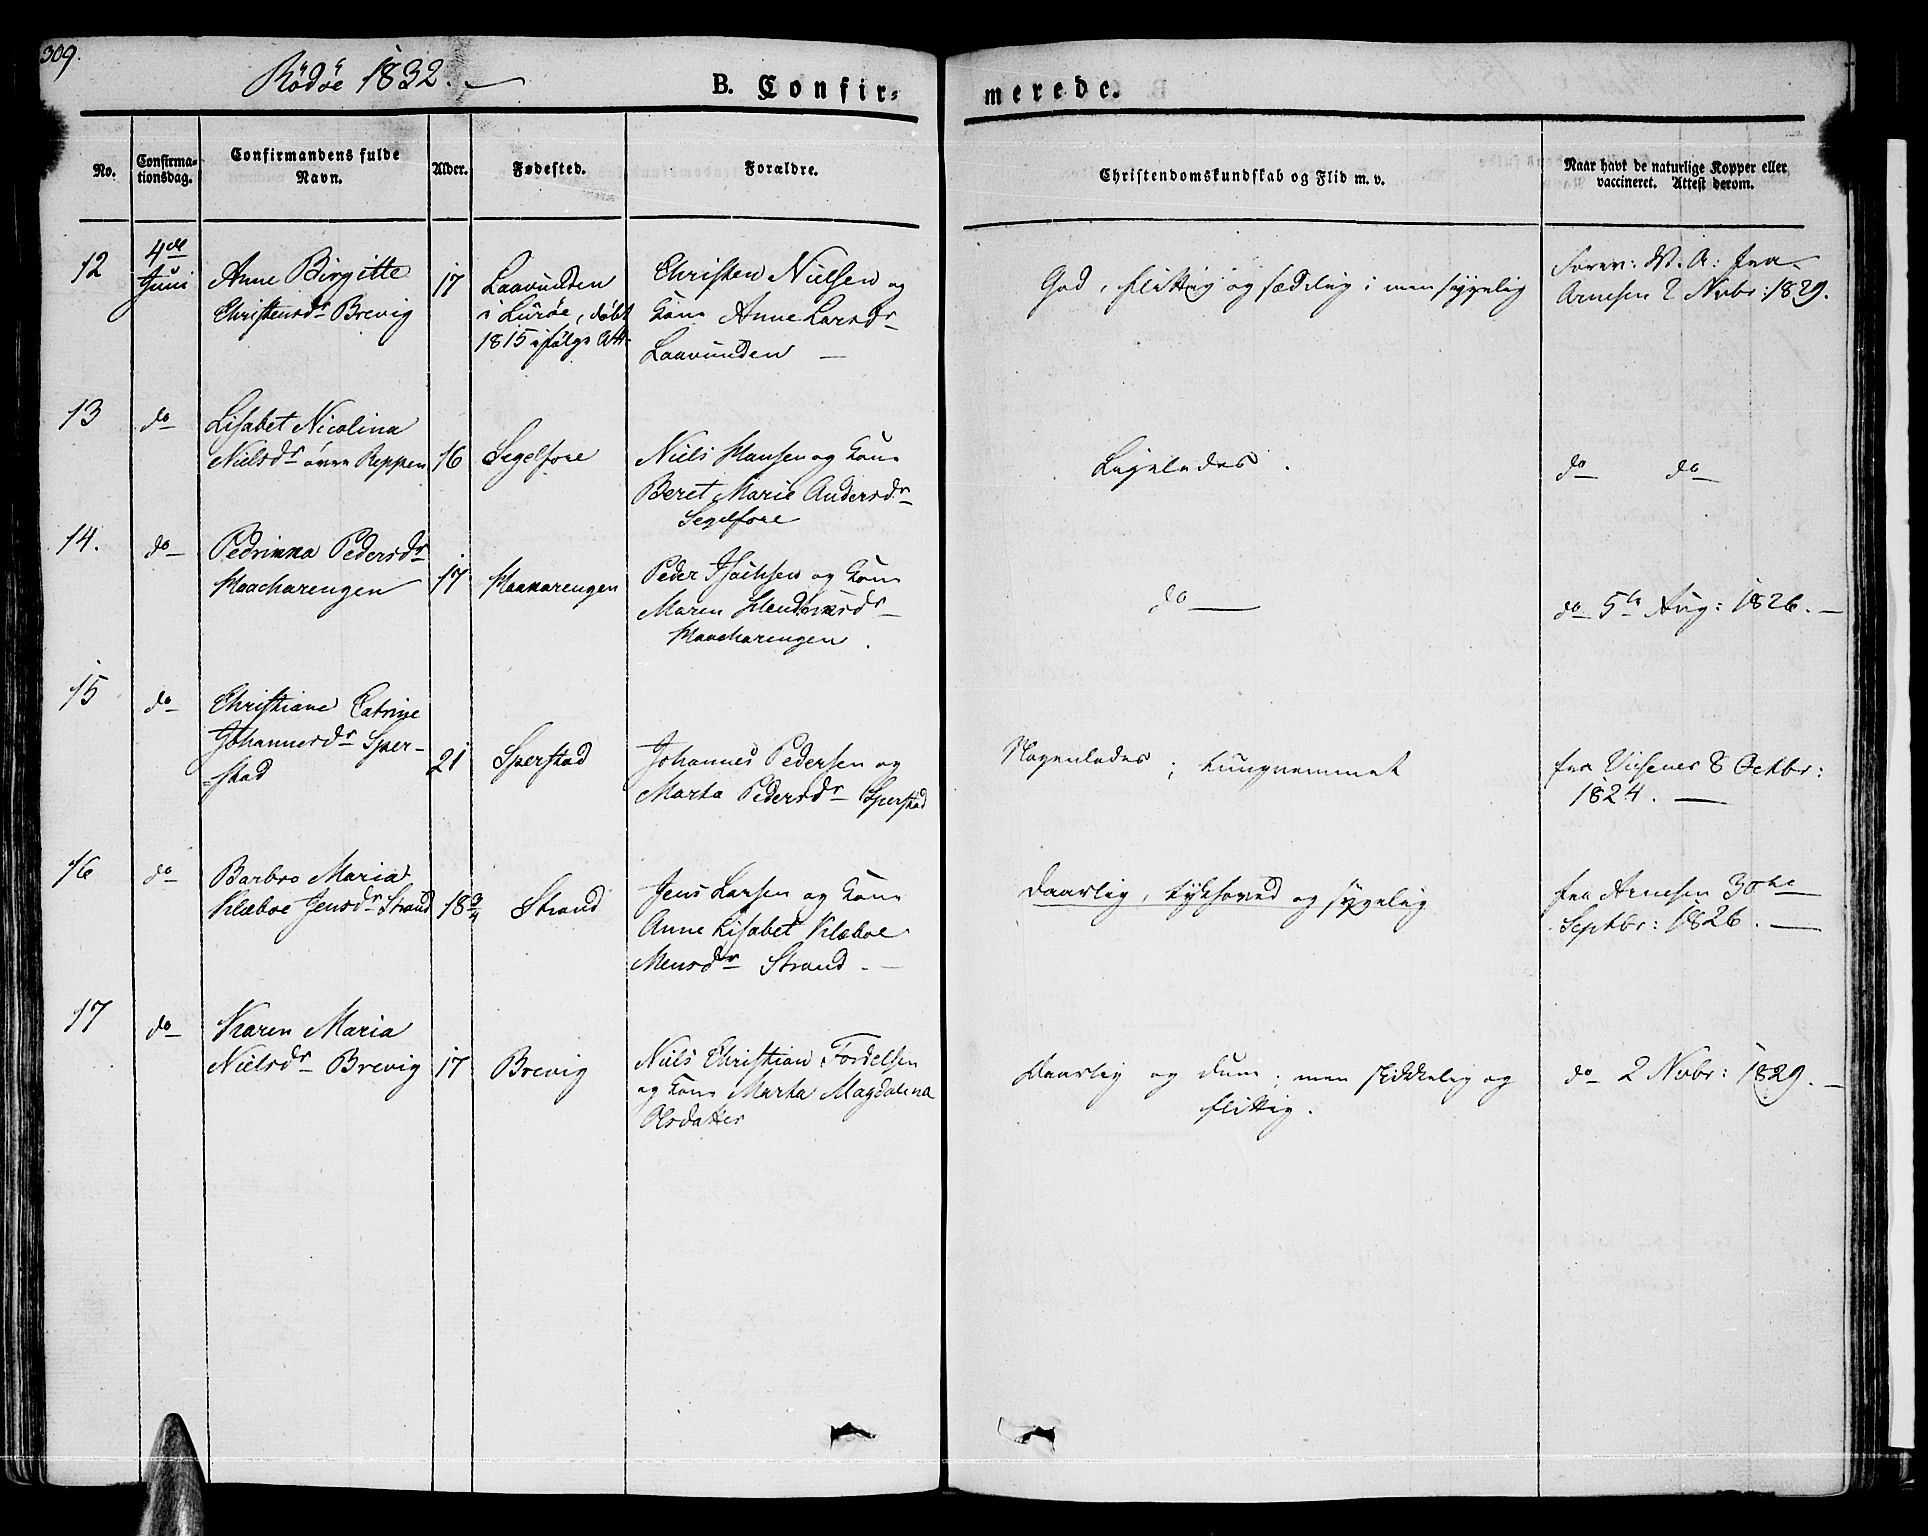 309.
Rödöe 1832.
B. Confir-
merede.
No.
Confirma-
tionsdag.
Confirmandens fulde
Navn.
Alder.
Fødested.
Forældre.
Christendomskundskab og Flid m. v.
Naar havt de naturlige Kopper eller
vaccineret. Attest derom.
12
4de
Juni
Anne Birgitte
Christensdr Brevig
17
Laavunden
i Luröe, döbt
1815 ifölge Att
Christen Nielsen og
Kone Anne Larsdr
Laavunden
God, flittig og sædelig; men sygelig
Forev: V. A: fra
Arnesen 2 Nvbr: 1829.
13
do
Lisabet Nicolina
Nielsdr övre Reppen
16
Segelfore
Niels Hansen og Kone
Beret Marie Andersdr
Segelfore
Ligeledes.
do do
14.
do
Pedrinna Pedersdr
Haacharengen
17
Haakarengen
Peder Isachsen og Kone
Maren
Haacharengen.
do
do 5te Aug: 1826.
15
do
Christiane Catrine
Johannesdr Sper-
stad
21
Sperstad
Johannes Pedersen og
Marta Pedersdr Sperstad
Nogenledes; tungnemmet
fra 8 Octbr:
1824.
16
do
Barbro Maria
Klæboe Jensdr Strand
18 3/4
Strand
Jens Larsen og Kone
Anne Lisabet Klæboe
Mensdr Strand.
Daarlig, tykhoved og sygelig
fra Arnesen 30te
Septbr: 1826.
17
do
Karen Maria
Nielsdr Brevig
17
Brevig
Niels Christian Fordelsen
og Kone Marta Magdalena
Olsdatter
Daarlig og dum; men skikkelig og
flittig.
do 2 Nvbr: 1829.